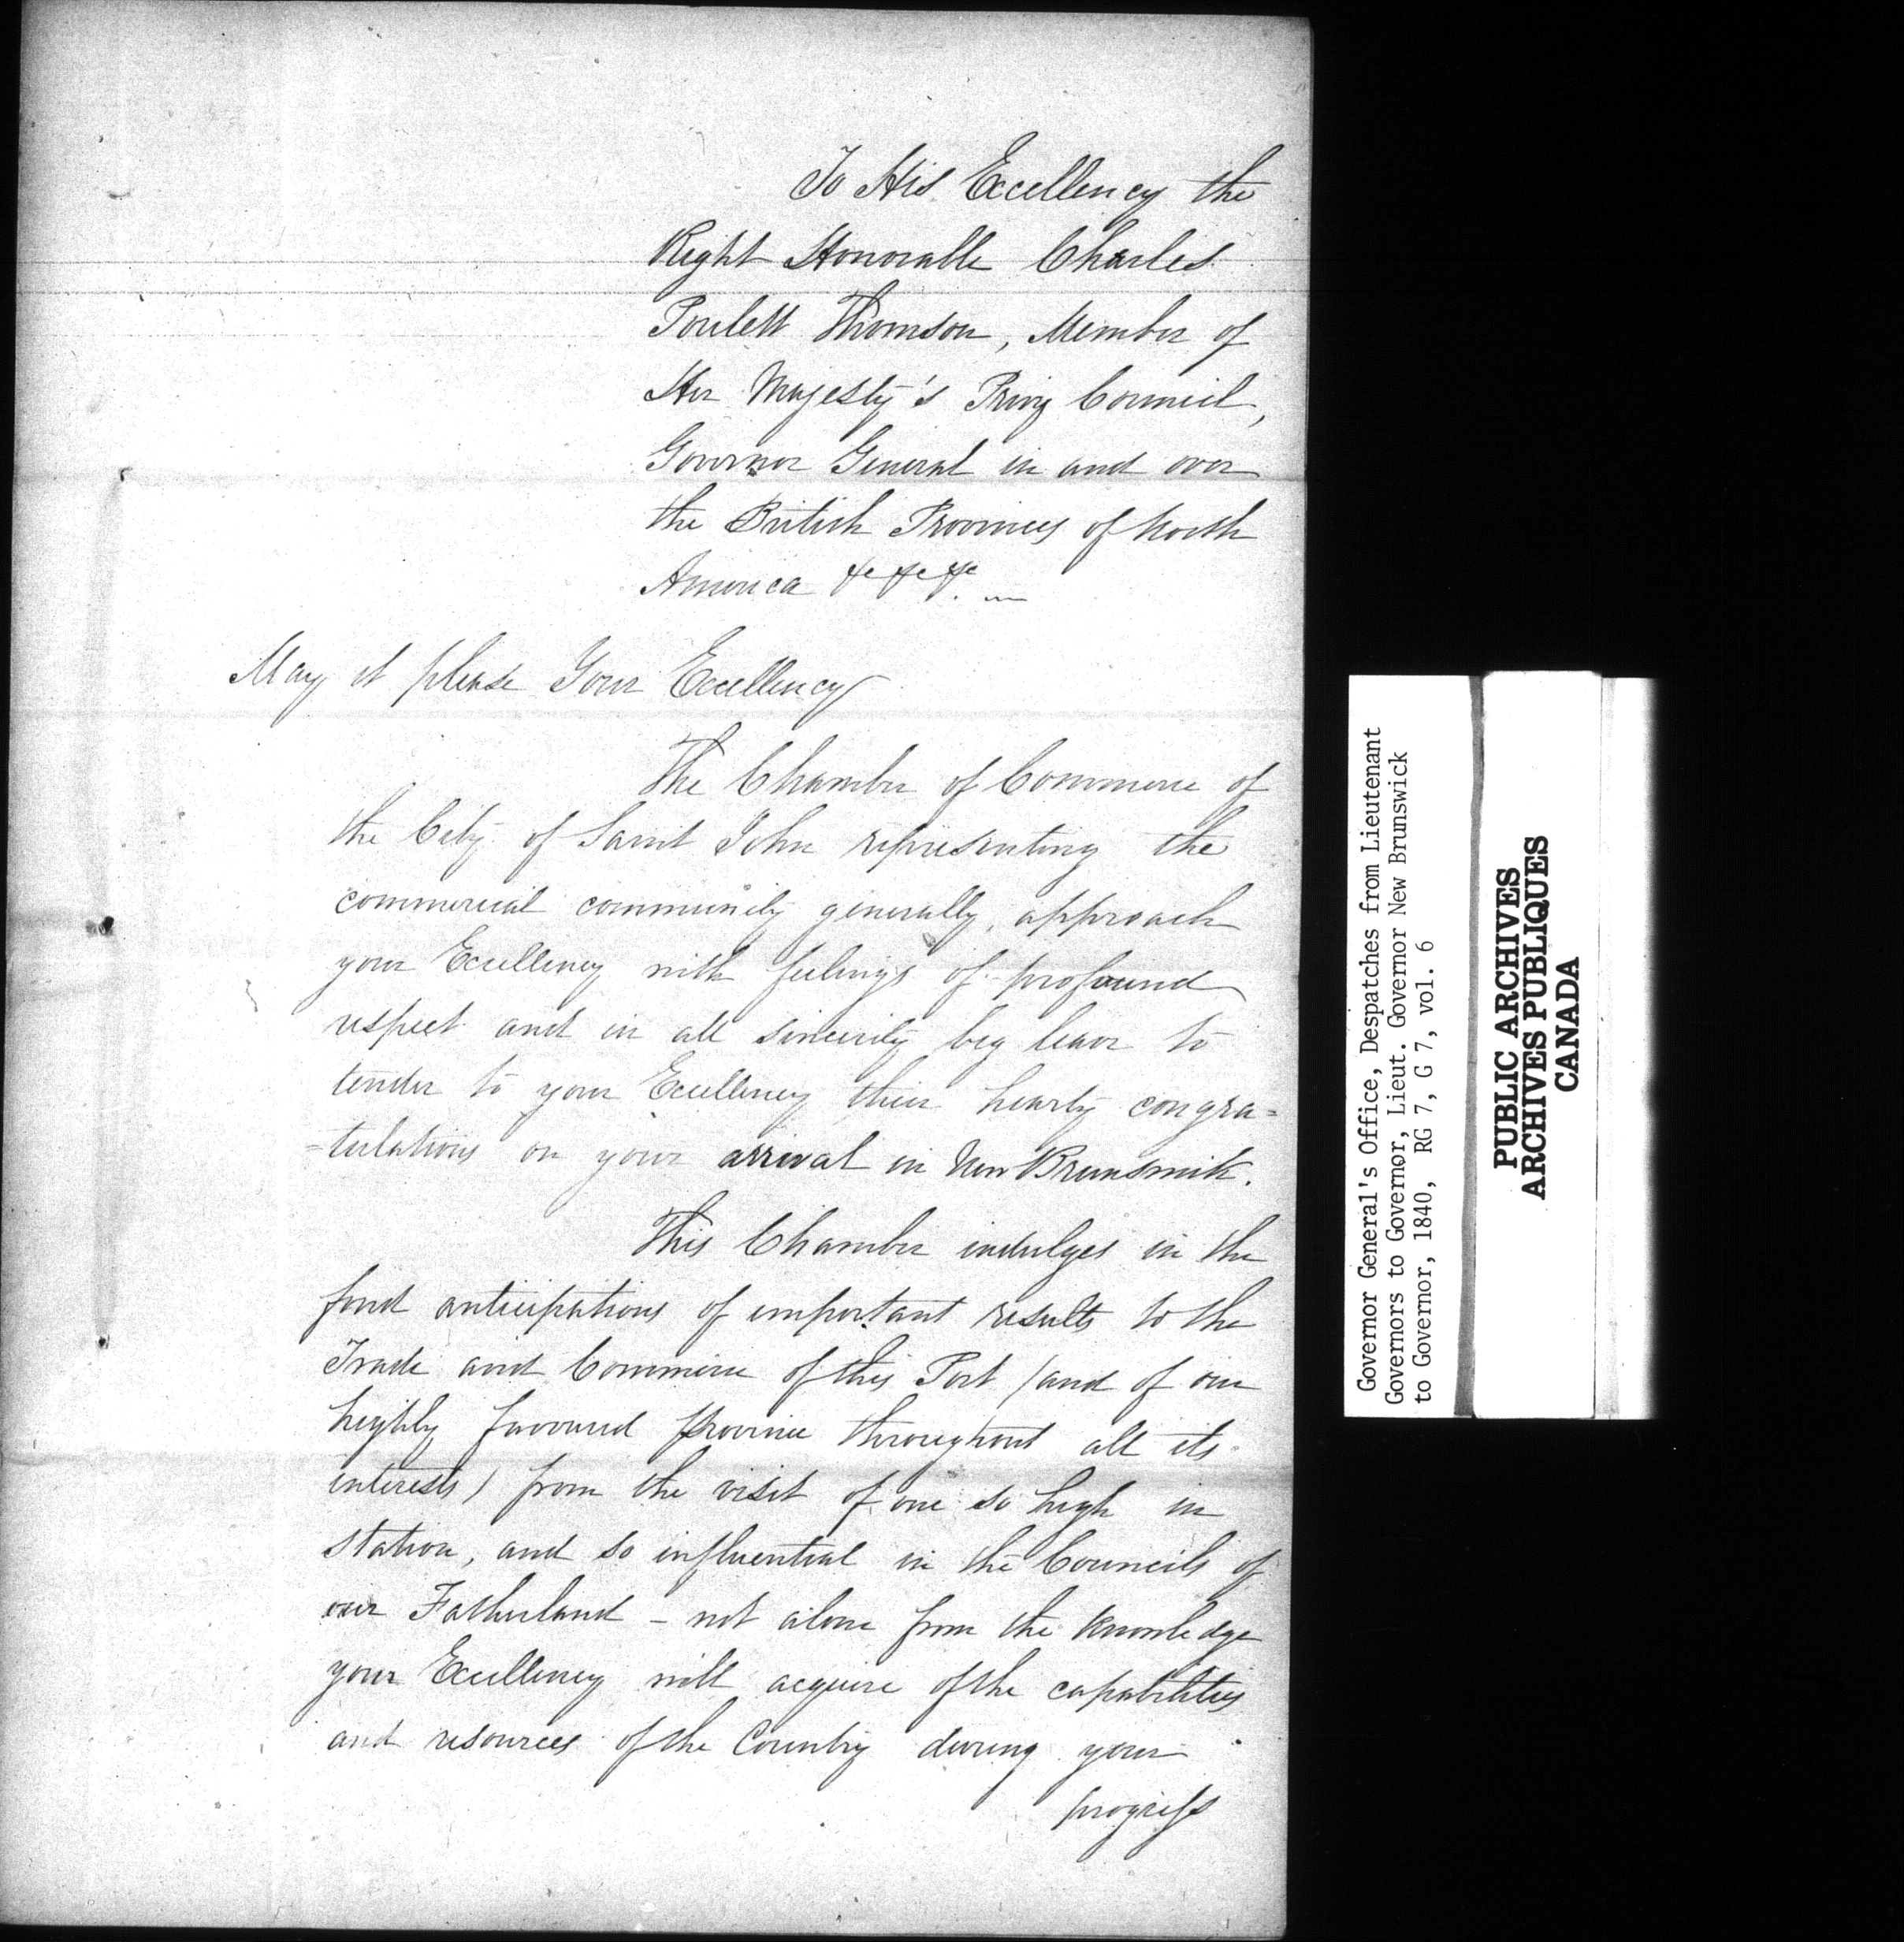 To His Excellency the
Right Honorable Charles
Poulett Thomson, Member of
Her Majesty's Privy Council,
Governor General in and over
the British Provinces of North
America &c &c &c.
May it please Your Excellency
The Chamber of Commerce of
the City of Saint John representing the
commercial community generally, approach
your Excellency with feelings of profound
respect and in all sincerity beg leave to
tender to your Excellency their hearty congra=
=tulations on your arrival in New Brunswick.
This Chamber indulges in the
fond anticipations of important results to the
Trade and Commerce of this Port (and of our
highly favoured province throughout all its
interests) from the visit of one so high in
station, and so influential in the Councils of
our Fatherland - not alone from the knowledge
your Excellency will acquire of the capabilities
and resources of the Country during your
progress
Governor General's Office, Despatches from Lieutenant
Governors to Governor, Lieut. Governor New Brunswick
to Governor, 1840, RG 7, G 7, vol. 6
PUBLIC ARCHIVES
ARCHIVES PUBLIQUES
CANADA